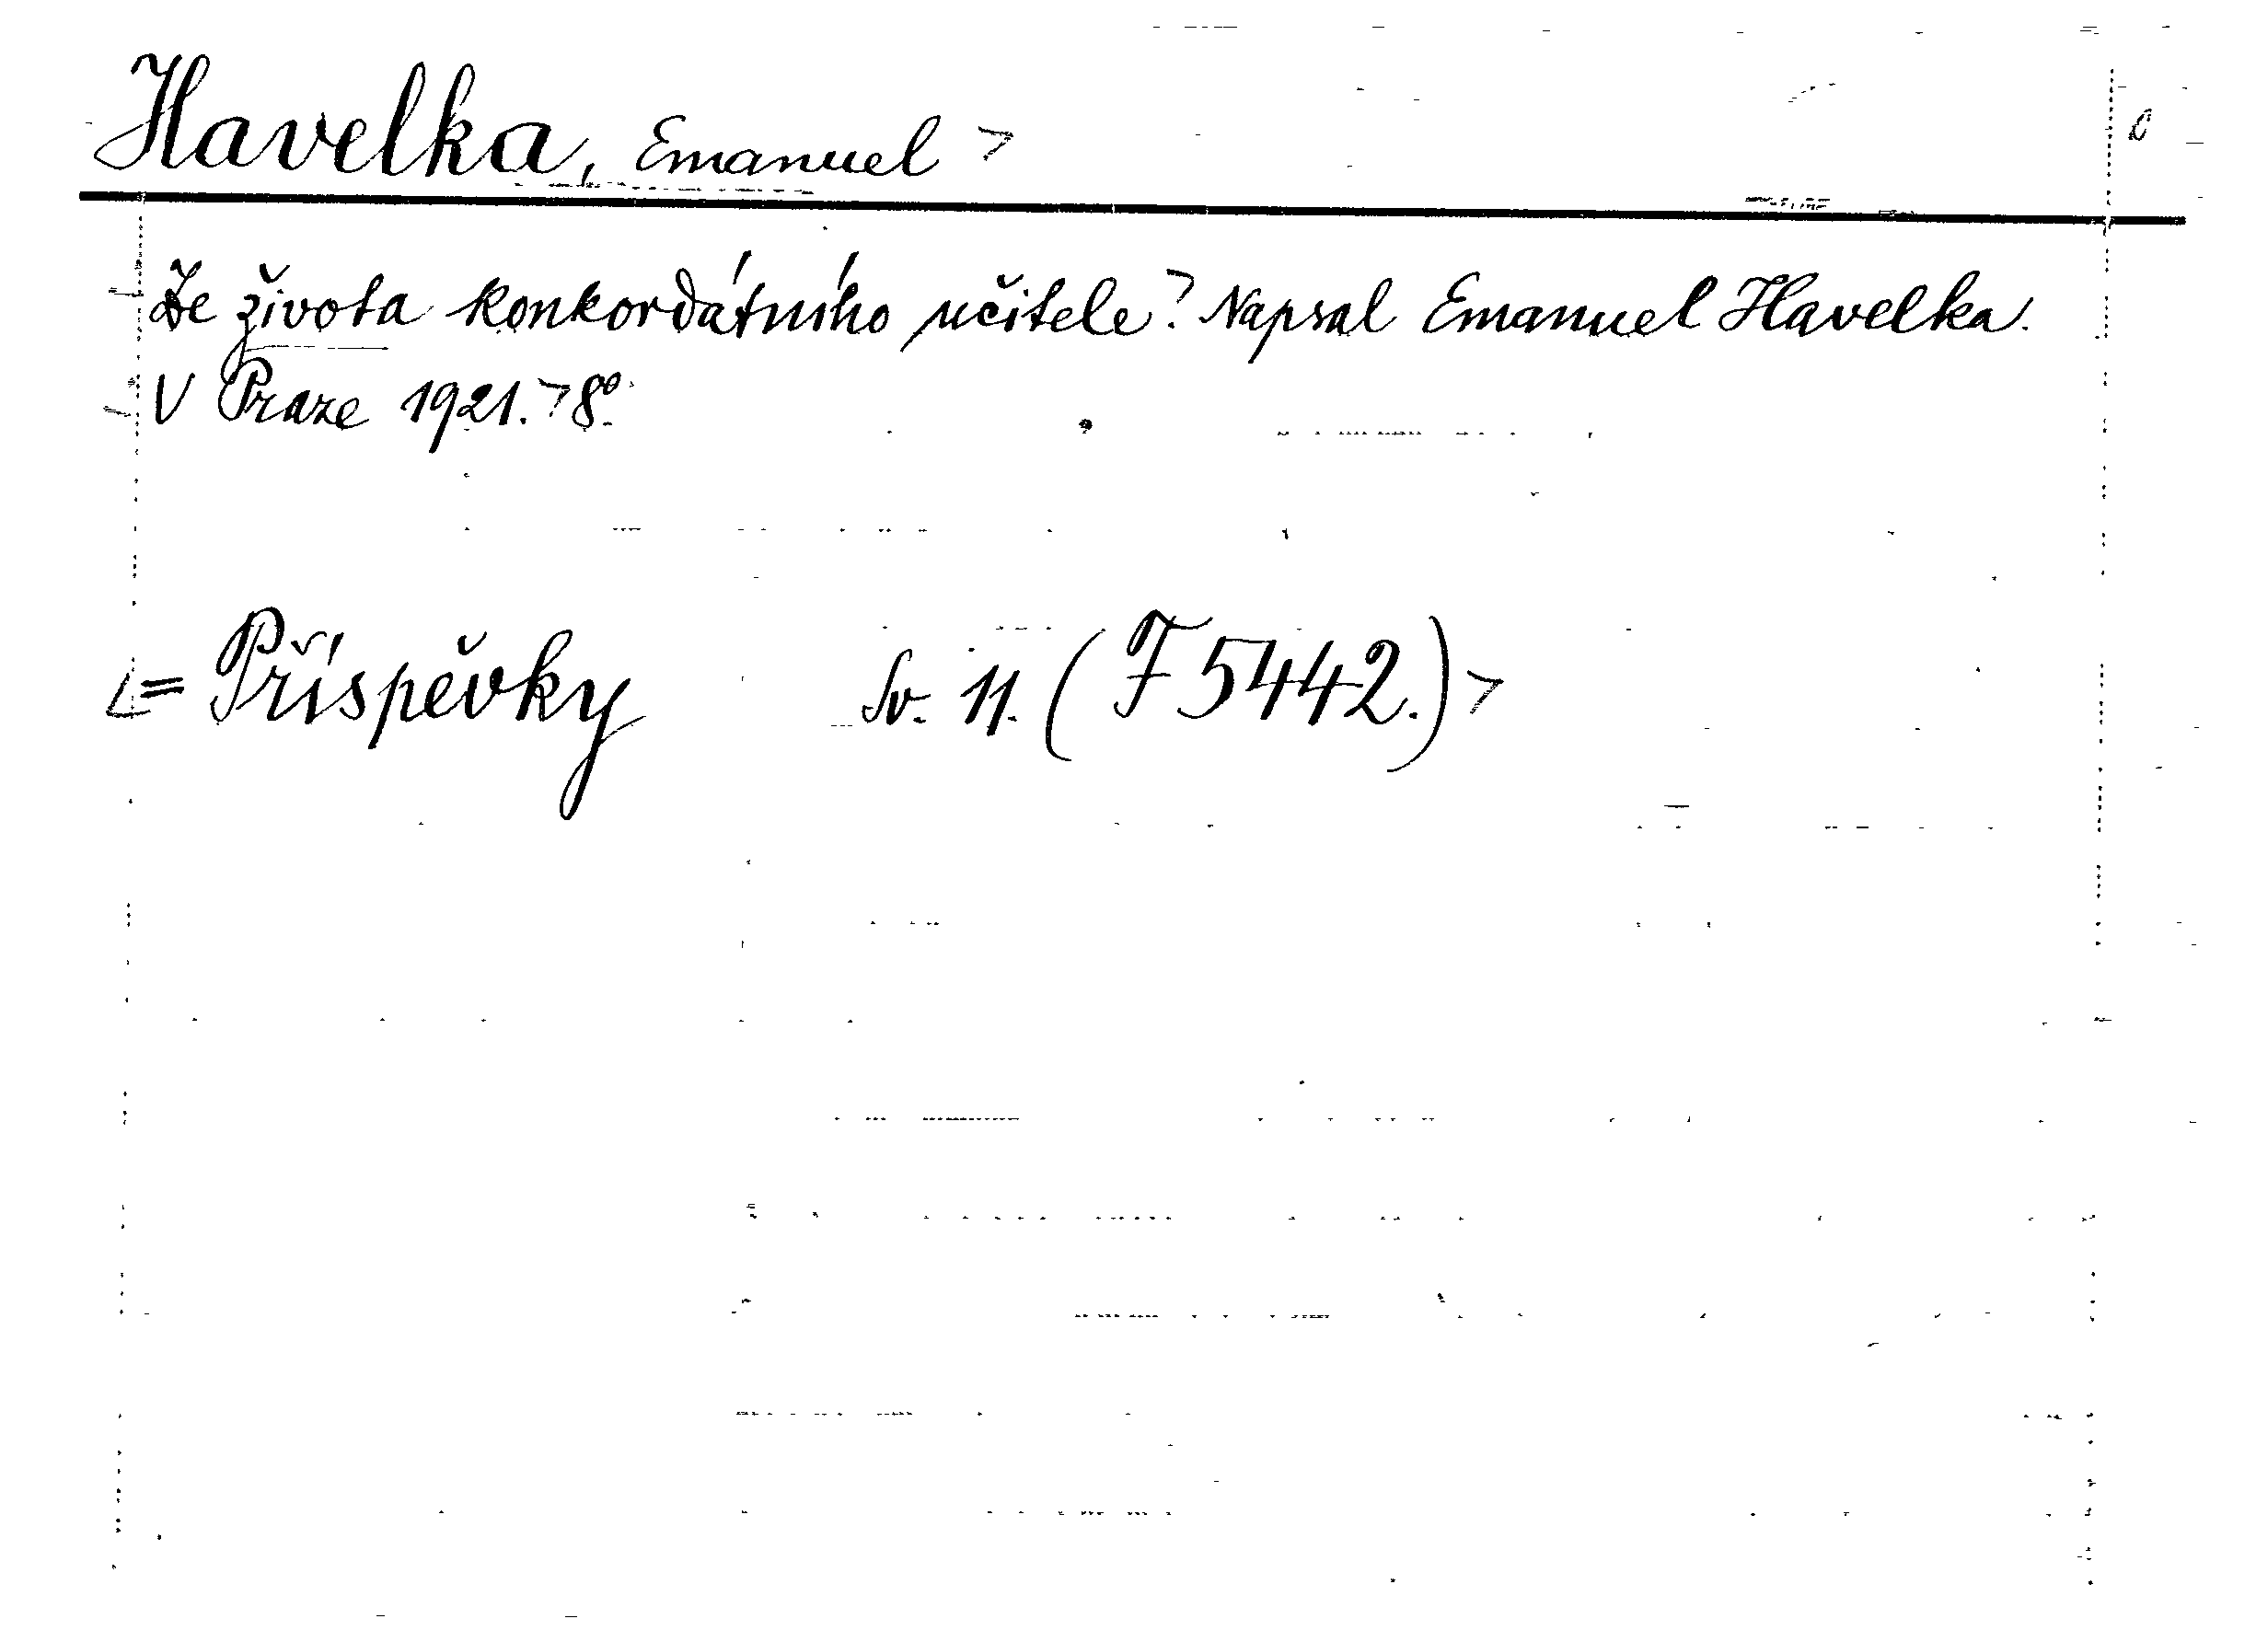 Havelka, Emanuel >
Ze života konkordátního učitele? Napsal Emanuel Havelka.
V Praze 1921. > 8º.
= Příspěvky Sv. 11. (F 5442.) >